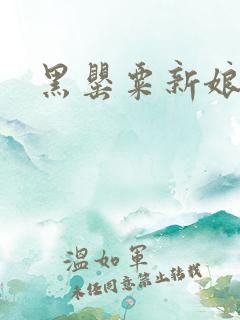 黑罂粟新娘
温如军
未经同意禁止转载